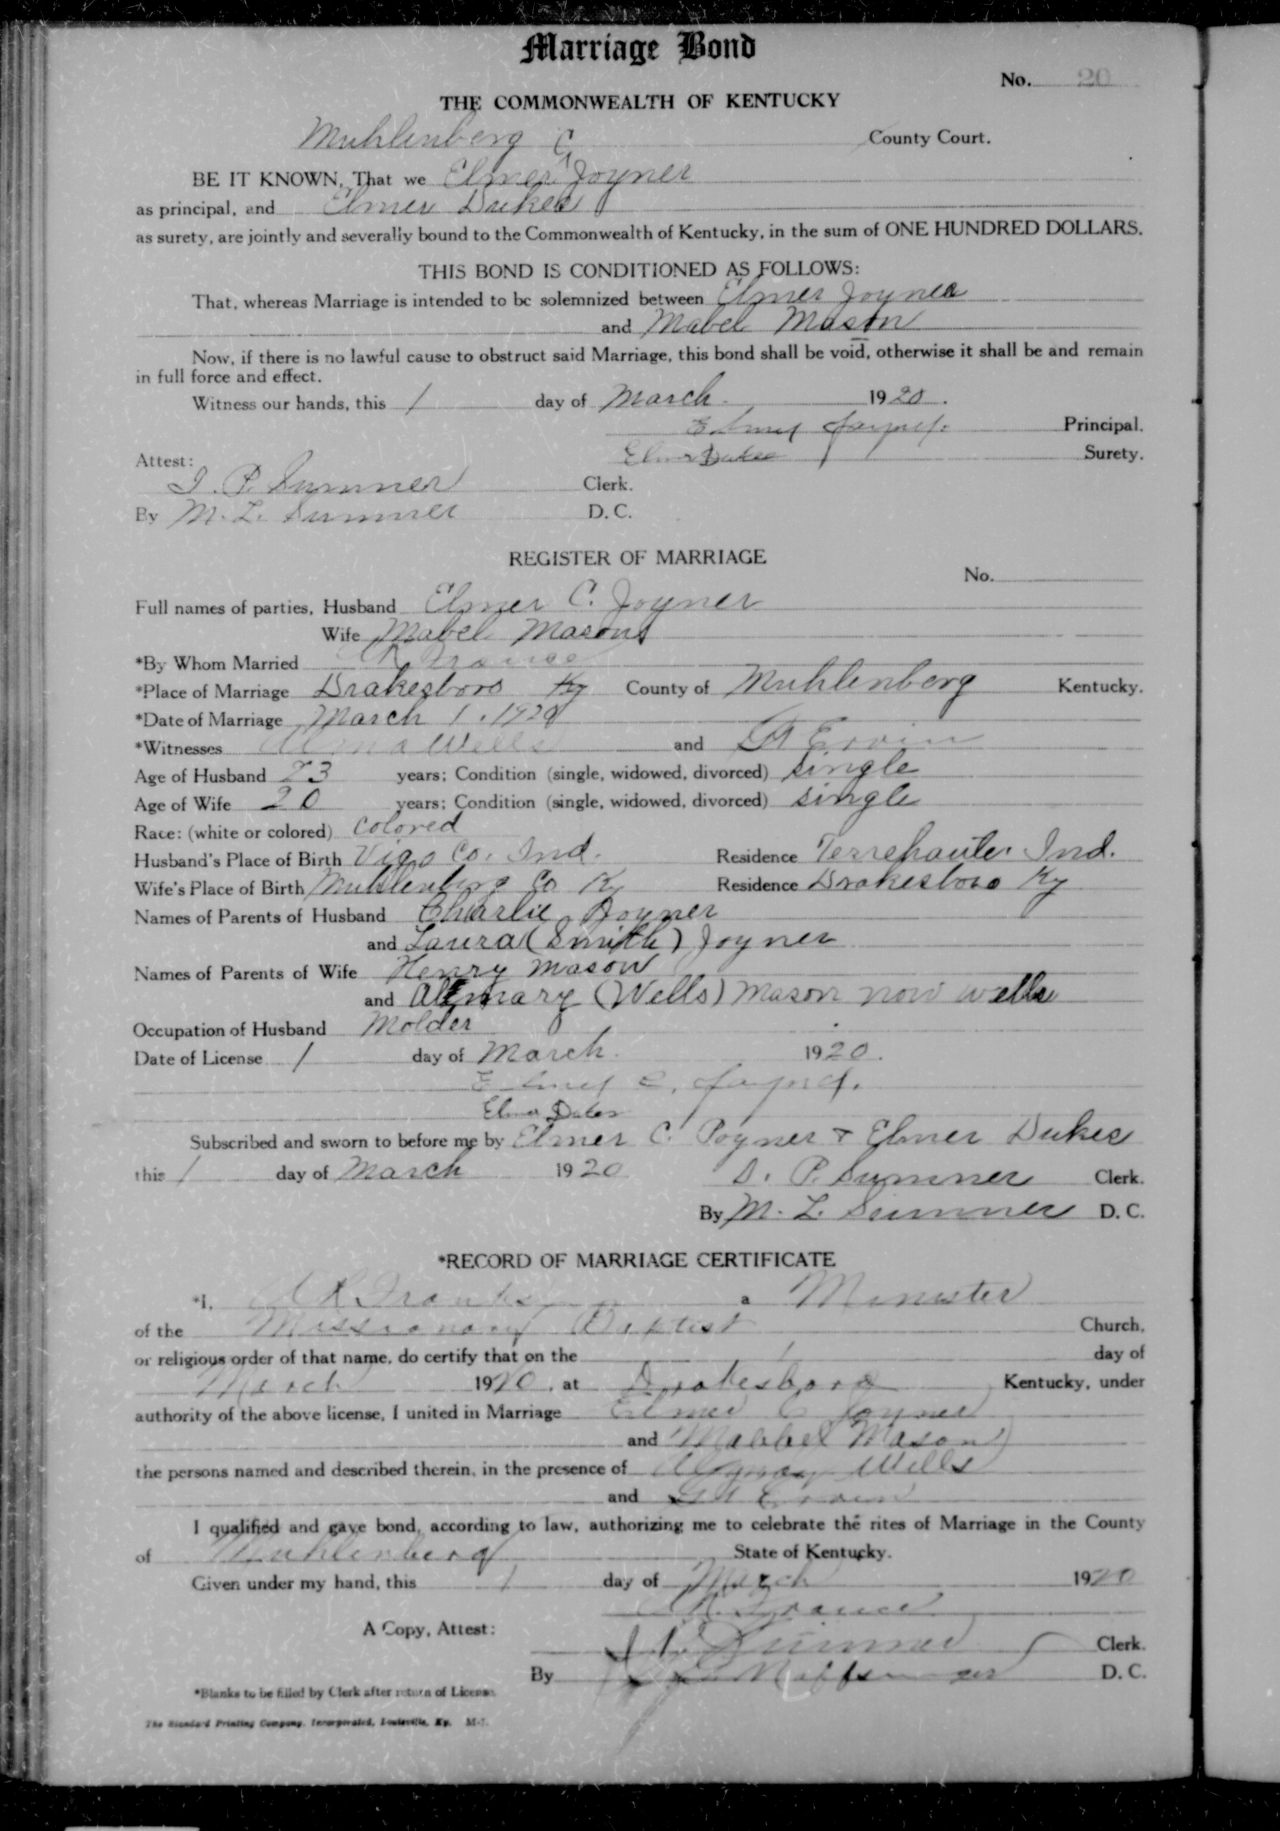 Marriage Bond
No. 20
THE COMMONWEALTH OF KENTUCKY
Muhlenberg County Court.
C
BE IT KNOWN, That we Elmer Joyner
as principal, and Elmer Dukes
as surety, are jointly and severally bound to the Commonwealth of Kentucky, in the sum of ONE HUNDRED DOLLARS.
THIS BOND IS CONDITIONED AS FOLLOWS:
That, whereas Marriage is intended to be solemnized between Elmer Joyner
and Mabel Mason
Now, if there is no lawful cause to obstruct said Marriage, this bond shall be void, otherwise it shall be and remain
in full force and effect.
Witness our hands, this 1 day of March. 1920.
Elmer Joyner. Principal.
Attest: Elmer Dukes Surety.
Sumner Clerk.
By M. L. Sumner D. C.
REGISTER OF MARRIAGE
No.
Full names of parties, Husband Elmer C. Joyner
Wife Mabel Mason
*By Whom Married
*Place of Marriage Drakesboro Ky County of Muhlenberg Kentucky.
*Date of Marriage March 1, 1920
*Witnesses Wells and Ervin
Age of Husband 23 years; Condition (single, widowed, divorced) single
Age of Wife 20 years; Condition (single, widowed, divorced) single
Race: (white or colored) colored
Husband's Place of Birth Vigo Co. Ind. Residence Terrehaute Ind.
Wife's Place of Birth Muhlenberg Co Ky Residence Drakesboro Ky
Names of Parents of Husband Charlie Joyner
and Laura (Smith) Joyner
Names of Parents of Wife Henry Mason
and (Wells) Mason now Wells
Occupation of Husband Molder
Date of License 1 day of March. 1920.
Elmer C. Joyner.
Elmer Dukes
Subscribed and sworn to before me by Elmer C. Joyner & Elmer Dukes
this 1 day of March 1920 Sumner Clerk.
By M. L. Sumner D. C.
*RECORD OF MARRIAGE CERTIFICATE
*I, a Minister
of the Missionary Baptist Church,
or religious order of that name, do certify that on the 1 day of
March 1920, at Drakesboro Kentucky, under
authority of the above license, I united in Marriage Elmer C Joyner
and Mabbel Mason
the persons named and described therein, in the presence of Wells
and Ervin
I qualified and gave bond, according to law, authorizing me to celebrate the rites of Marriage in the County
of Muhlenberg State of Kentucky.
Given under my hand, this 1 day of March 1920
A Copy, Attest:
Sumner Clerk.
By D. C.
*Blanks to be filled by Clerk after return of License.
The Standard Printing Company, Incorporated, Louisville, Ky.